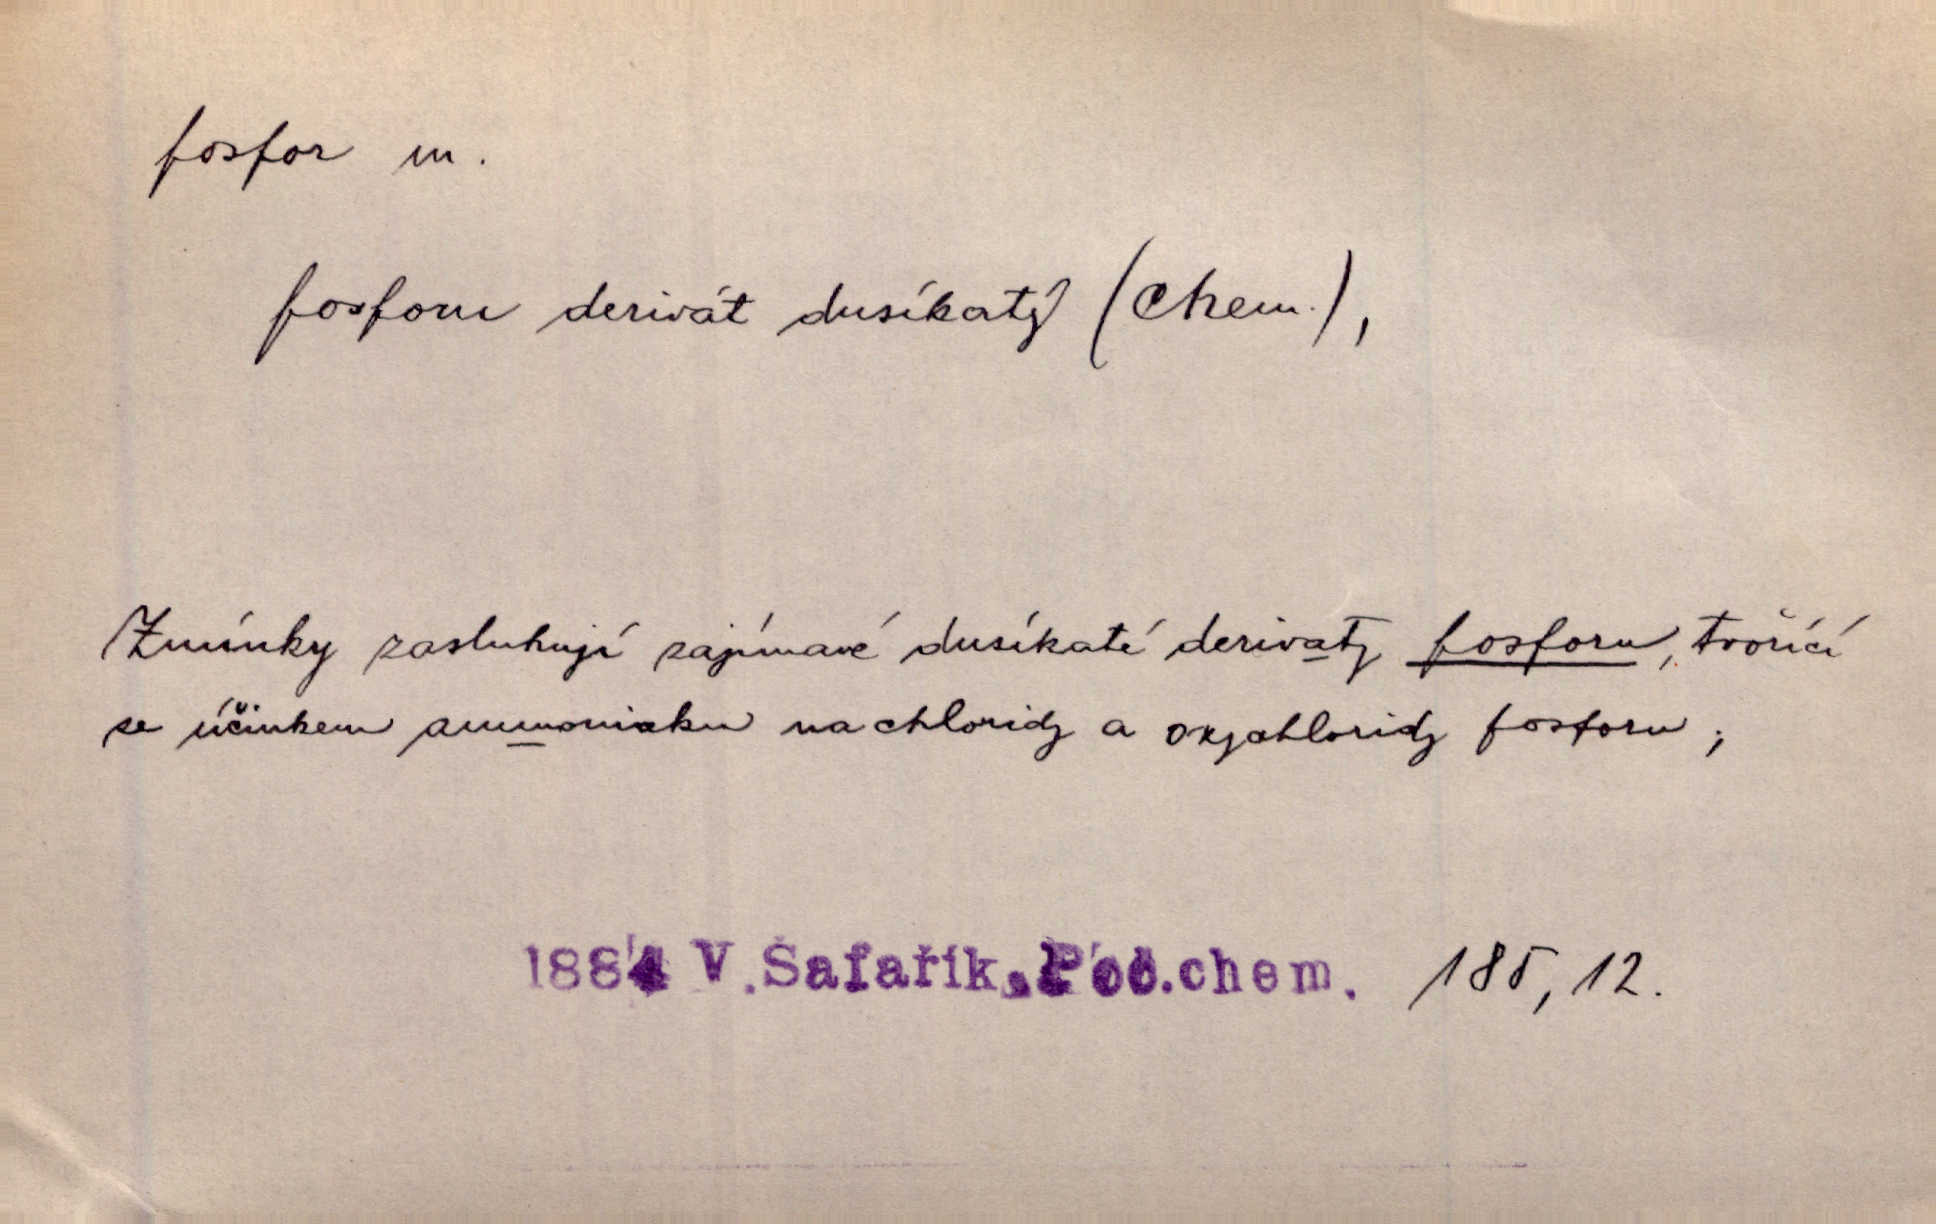 fosfor m.
fosforu derivát dusíkatý (chem.),
Zmínky zasluhují zajímavé dusíkaté derivaty fosforu, tvořící
se účinkem ammoniaku na chloridy a oxychloridy fosforu;
1884 V. Šafařík. Poč.chem. 185, 12.